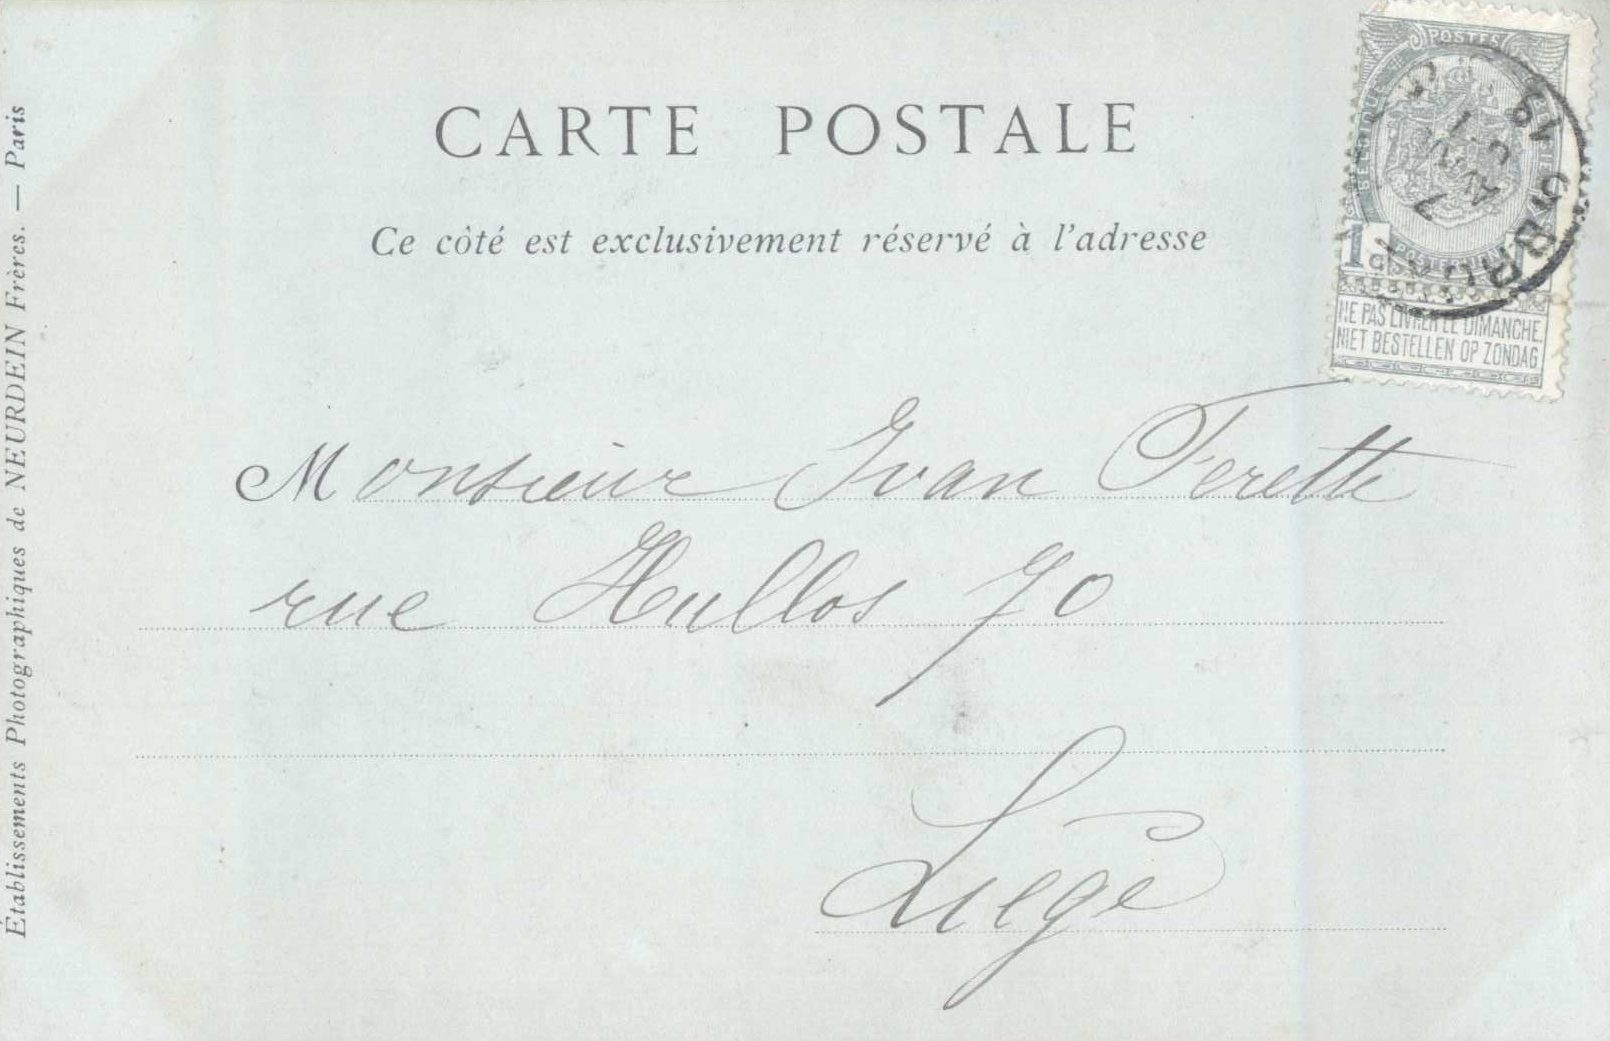 CARTE POSTALE
Ce côté est exclusivement réservé à l'adresse
POSTES
BELGIQUE
1
NE PAS LIVRER LE DIMANCHE.
NIET BESTELLEN OP ZONDAG
Monsieur Ivan Ferette
rue Hullos 70
Liége
Établissements Photographiques de NEURDEIN Frères. — Paris